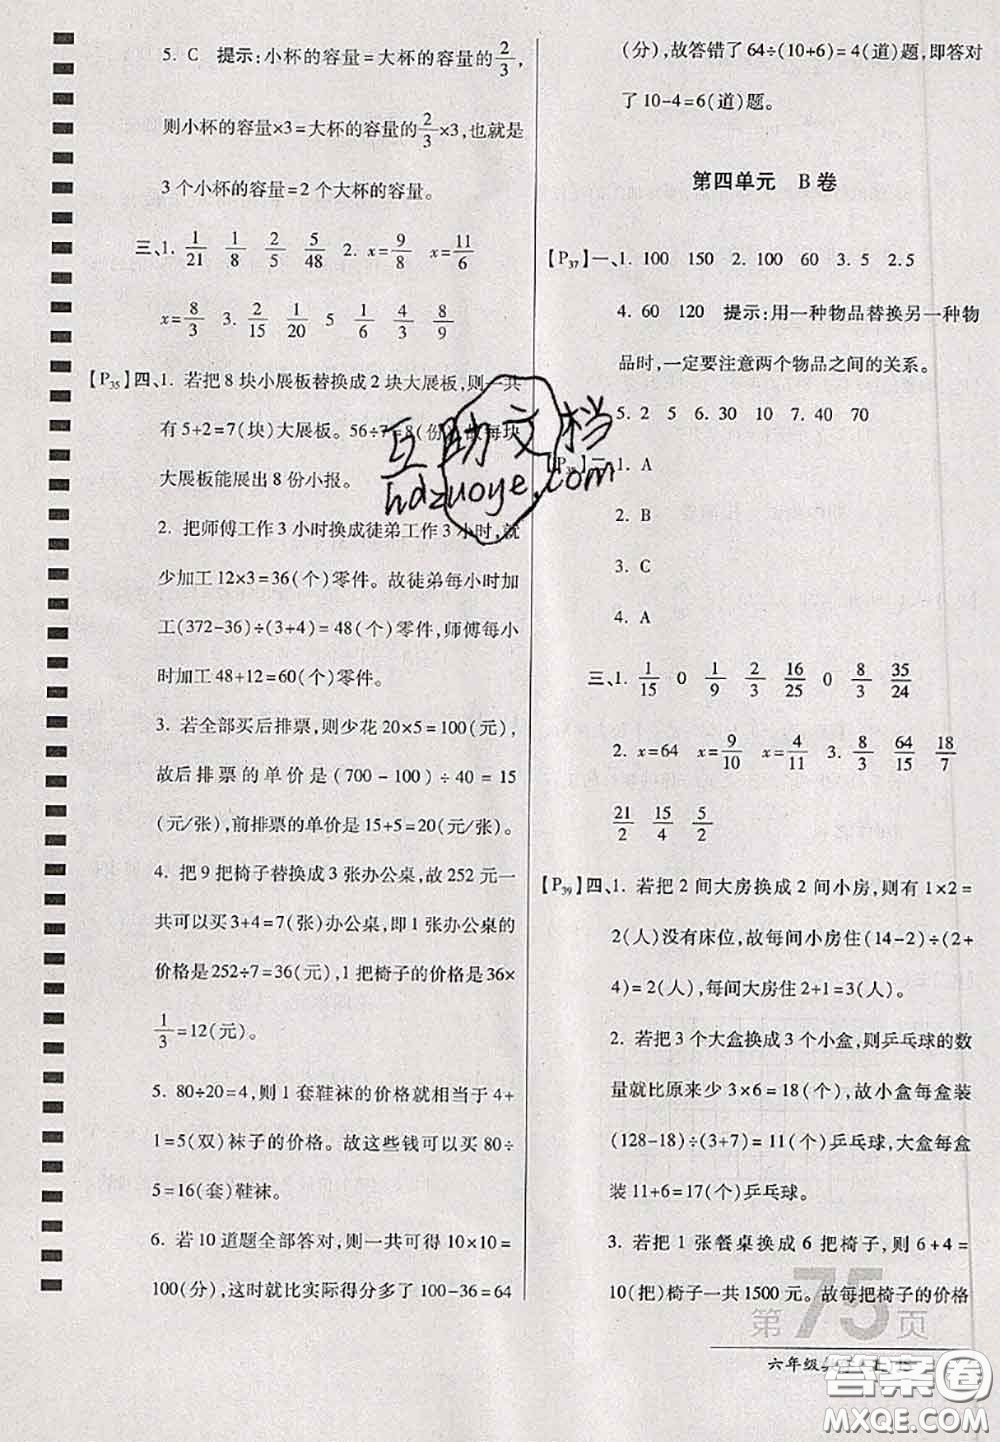 5. C 提示:小杯的容量=大杯的容量的2/3,
则小杯的容量×3=大杯的容量的2/3×3,也就是
3个小杯的容量=2个大杯的容量。
三、1. 1/21 1/8 2/5 5/48 2. x=9/8 x=11/6
x=8/3 3. 2/15 1/20 5 1/6 4/3 8/9
【P35】四、1. 若把8块小展板替换成2块大展板,则一共
有5+2=7(块)大展板。56÷7=8(份),故每块
大展板能展出8份小报。
2. 把师傅工作3小时换成徒弟工作3小时,就
少加工12×3=36(个)零件。故徒弟每小时加
工(372-36)÷(3+4)=48(个)零件,师傅每小
时加工48+12=60(个)零件。
3. 若全部买后排票,则少花20×5=100(元),
故后排票的单价是(700-100)÷40=15
(元/张),前排票的单价是15+5=20(元/张)。
4. 把9把椅子替换成3张办公桌,故252元一
共可以买3+4=7(张)办公桌,即1张办公桌的
价格是252÷7=36(元),1把椅子的价格是36×
1/3=12(元)。
5. 80÷20=4,则1套鞋袜的价格就相当于4+
1=5(双)袜子的价格。故这些钱可以买80÷
5=16(套)鞋袜。
6. 若10道题全部答对,则一共可得10×10=
100(分),这时就比实际得分多了100-36=64
(分),故答错了64÷(10+6)=4(道)题,即答对
了10-4=6(道)题。
第四单元 B卷
【P37】一、1. 100 150 2. 100 60 3. 5 2.5
4. 60 120 提示:用一种物品替换另一种物
品时,一定要注意两个物品之间的关系。
5. 2 5 6. 30 10 7. 40 70
二、1. A
2. B
3. C
4. A
三、1. 1/15 0 1/9 2/3 16/25 0 8/3 35/24
2. x=64 x=9/10 x=4/11 3. 8/3 64/15 18/7
21/2 15/4 5/2
【P39】四、1. 若把2间大房换成2间小房,则有1×2=
2(人)没有床位,故每间小房住(14-2)÷(2+
4)=2(人),每间大房住2+1=3(人)。
2. 若把3个大盒换成3个小盒,则乒乓球的数
量就比原来少3×6=18(个),故小盒每盒装
(128-18)÷(3+7)=11(个)乒乓球,大盒每盒
装11+6=17(个)乒乓球。
3. 若把1张餐桌换成6把椅子,则6+4=
10(把)椅子一共1500元。故每把椅子的价格
第75页
六年级
互助文档
hdzuoye.com
答案圈
MXQE.COM